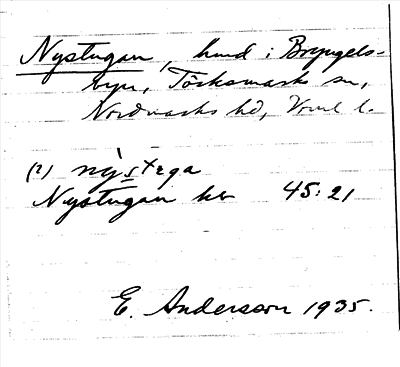 Nystugan, hmd i Bryngels-
byn, Töcksmarks sn,
Nordmarks hd, Vrml l.
(2) nỳstega
Nystugan kb 45:21
E. Anderson 1935.